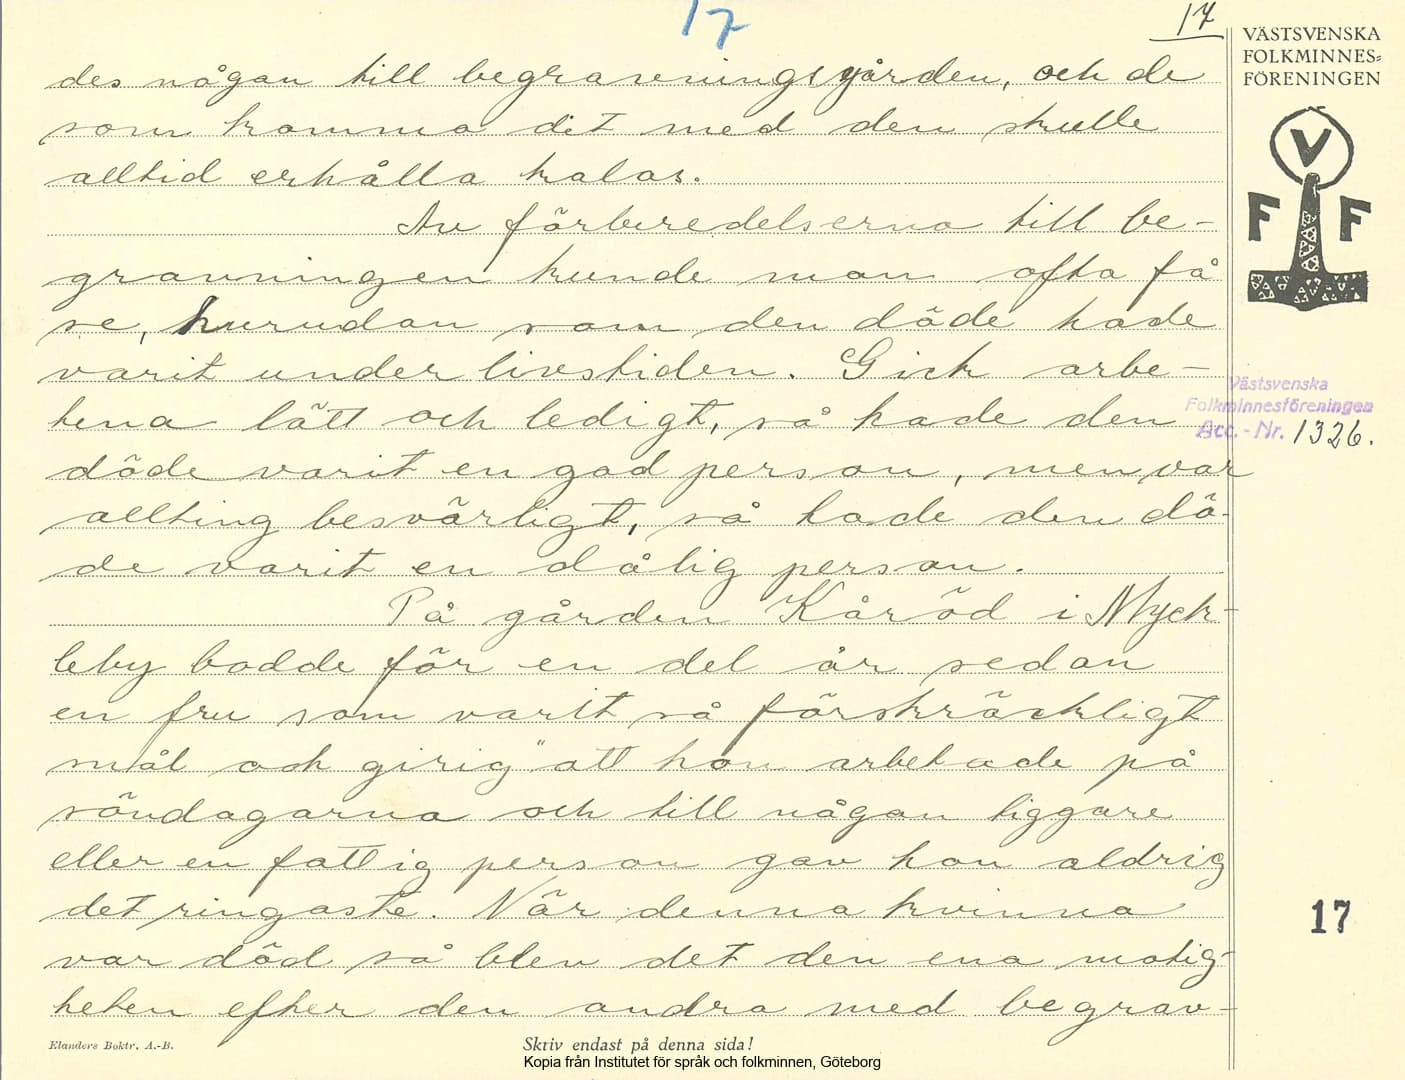 17
17
VÄSTSVENSKA
FOLKMINNES=
FÖRENINGEN
V
F F
des någon till begravningsgården, och de
som komma dit med den skulle
alltid erhålla kalas.
Av förberedelserna till be-
gravningen kunde man ofta få
se, hurudan som den döde hade
varit under livstiden. Gick arbe-
tena lätt och ledigt, så hade den
döde varit en god person, men var
allting besvärligt, så hade den dö-
de varit en dålig person.
Västsvenska
Folkminnesföreningen
Acc.-Nr. 1326.
På gården Kåröd i Myck-
leby bodde för en del år sedan
en fru som varit så förskräckligt
snål och girig" att hon arbetade på
söndagarna och till någon tiggare
eller en fattig person gav hon aldrig
det ringaste. När denna kvinna
var död så blev det den ena motig-
heten efter den andra med begrav-
17
Elanders Boktr. A.-B.
Skriv endast på denna sida!
Kopia från Institutet för språk och folkminnen, Göteborg